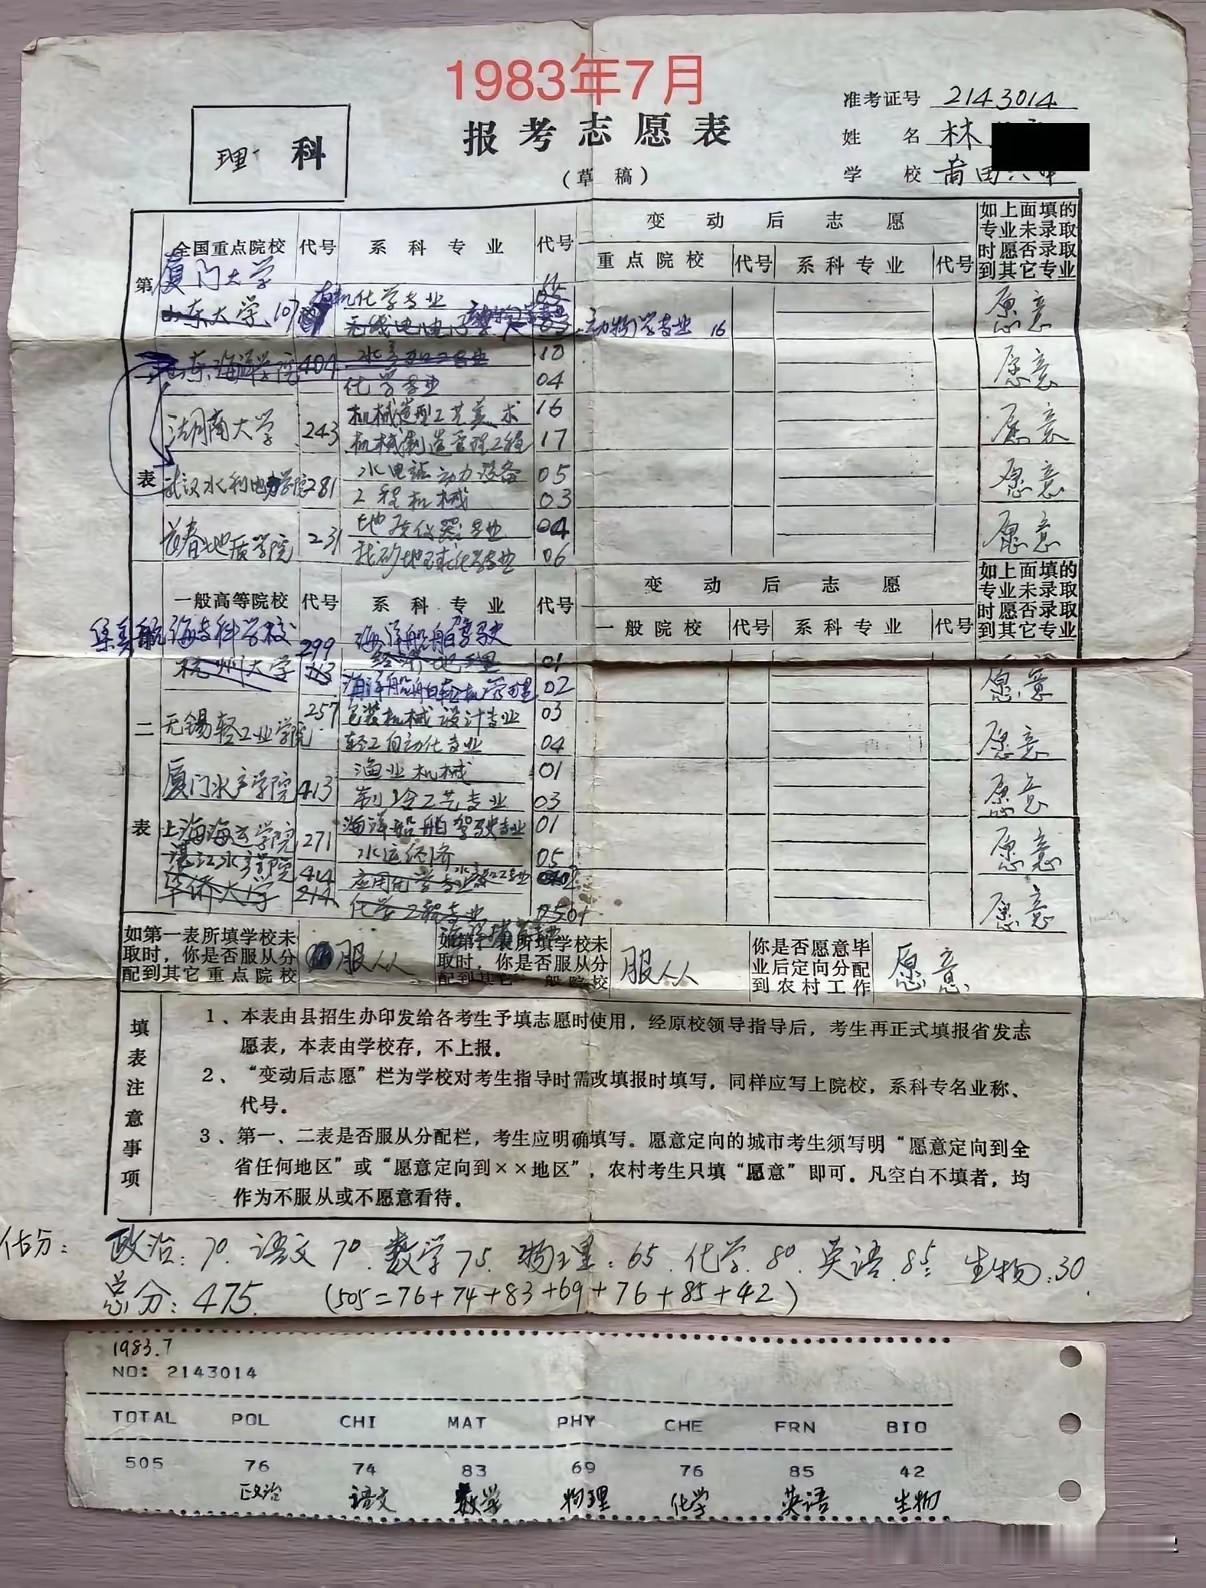 1983年7月
报考志愿表
（草稿）
理 科
准考证号 2143014
姓名 林
学校 莆田
第一表
全国重点院校 代号 系科专业 代号
变动后志愿
重点院校 代号 系科专业 代号
如上面填的专业未录取时愿否录取到其它专业
厦门大学
山东大学 107 有机化学专业
动物学专业 16 愿意
山东海洋学院 404 10
化学专业 04 愿意
湖南大学 243 机械造型工艺美术 16
机械制造管理工程 17 愿意
武汉水利电力学院 281 水电站动力设备 05
工程机械 03 愿意
长春地质学院 231 地质仪器专业 04
找矿地球化学专业 06 愿意
二表
一般高等院校 代号 系科专业 代号
变动后志愿
一般院校 代号 系科专业 代号
如上面填的专业未录取时愿否录取到其它专业
集美航海专科学校 299 海洋船舶驾驶
杭州大学 经济地理 01
海洋船舶轮机管理 02 愿意
无锡轻工业学院 257 包装机械设计专业 03
轻工自动化专业 04 愿意
厦门水产学院 413 渔业机械 01
制冷工艺专业 03 愿意
上海海运学院 271 海洋船舶驾驶专业 01
水运经济 05 愿意
湛江水产学院 414 应用化学专业
华侨大学 214 化学工程专业 愿意
如第一表所填学校未取时，你是否服从分配到其它重点院校 服从
如第二表所填学校未取时，你是否服从分配到其它一般院校 服从
你是否愿意毕业后定向分配到农村工作 愿意
填表注意事项
1、本表由县招生办印发给各考生予填志愿时使用，经原校领导指导后，考生再正式填报省发志
愿表，本表由学校存，不上报。
2、“变动后志愿”栏为学校对考生指导时需改填报时填写，同样应写上院校，系科专名业称、
代号。
3、第一、二表是否服从分配栏，考生应明确填写。愿意定向的城市考生须写明“愿意定向到全
省任何地区”或“愿意定向到××地区”，农村考生只填“愿意”即可。凡空白不填者，均
作为不服从或不愿意看待。
估分：政治：70. 语文 70. 数学 75. 物理：65. 化学. 80. 英语. 85 生物：30.
总分：475. （505=76+74+83+69+76+85+42）
1983.7
NO: 2143014
TOTAL POL CHI MAT PHY CHE FRN BIO
505 76 74 83 69 76 85 42
政治 语文 数学 物理 化学 英语 生物